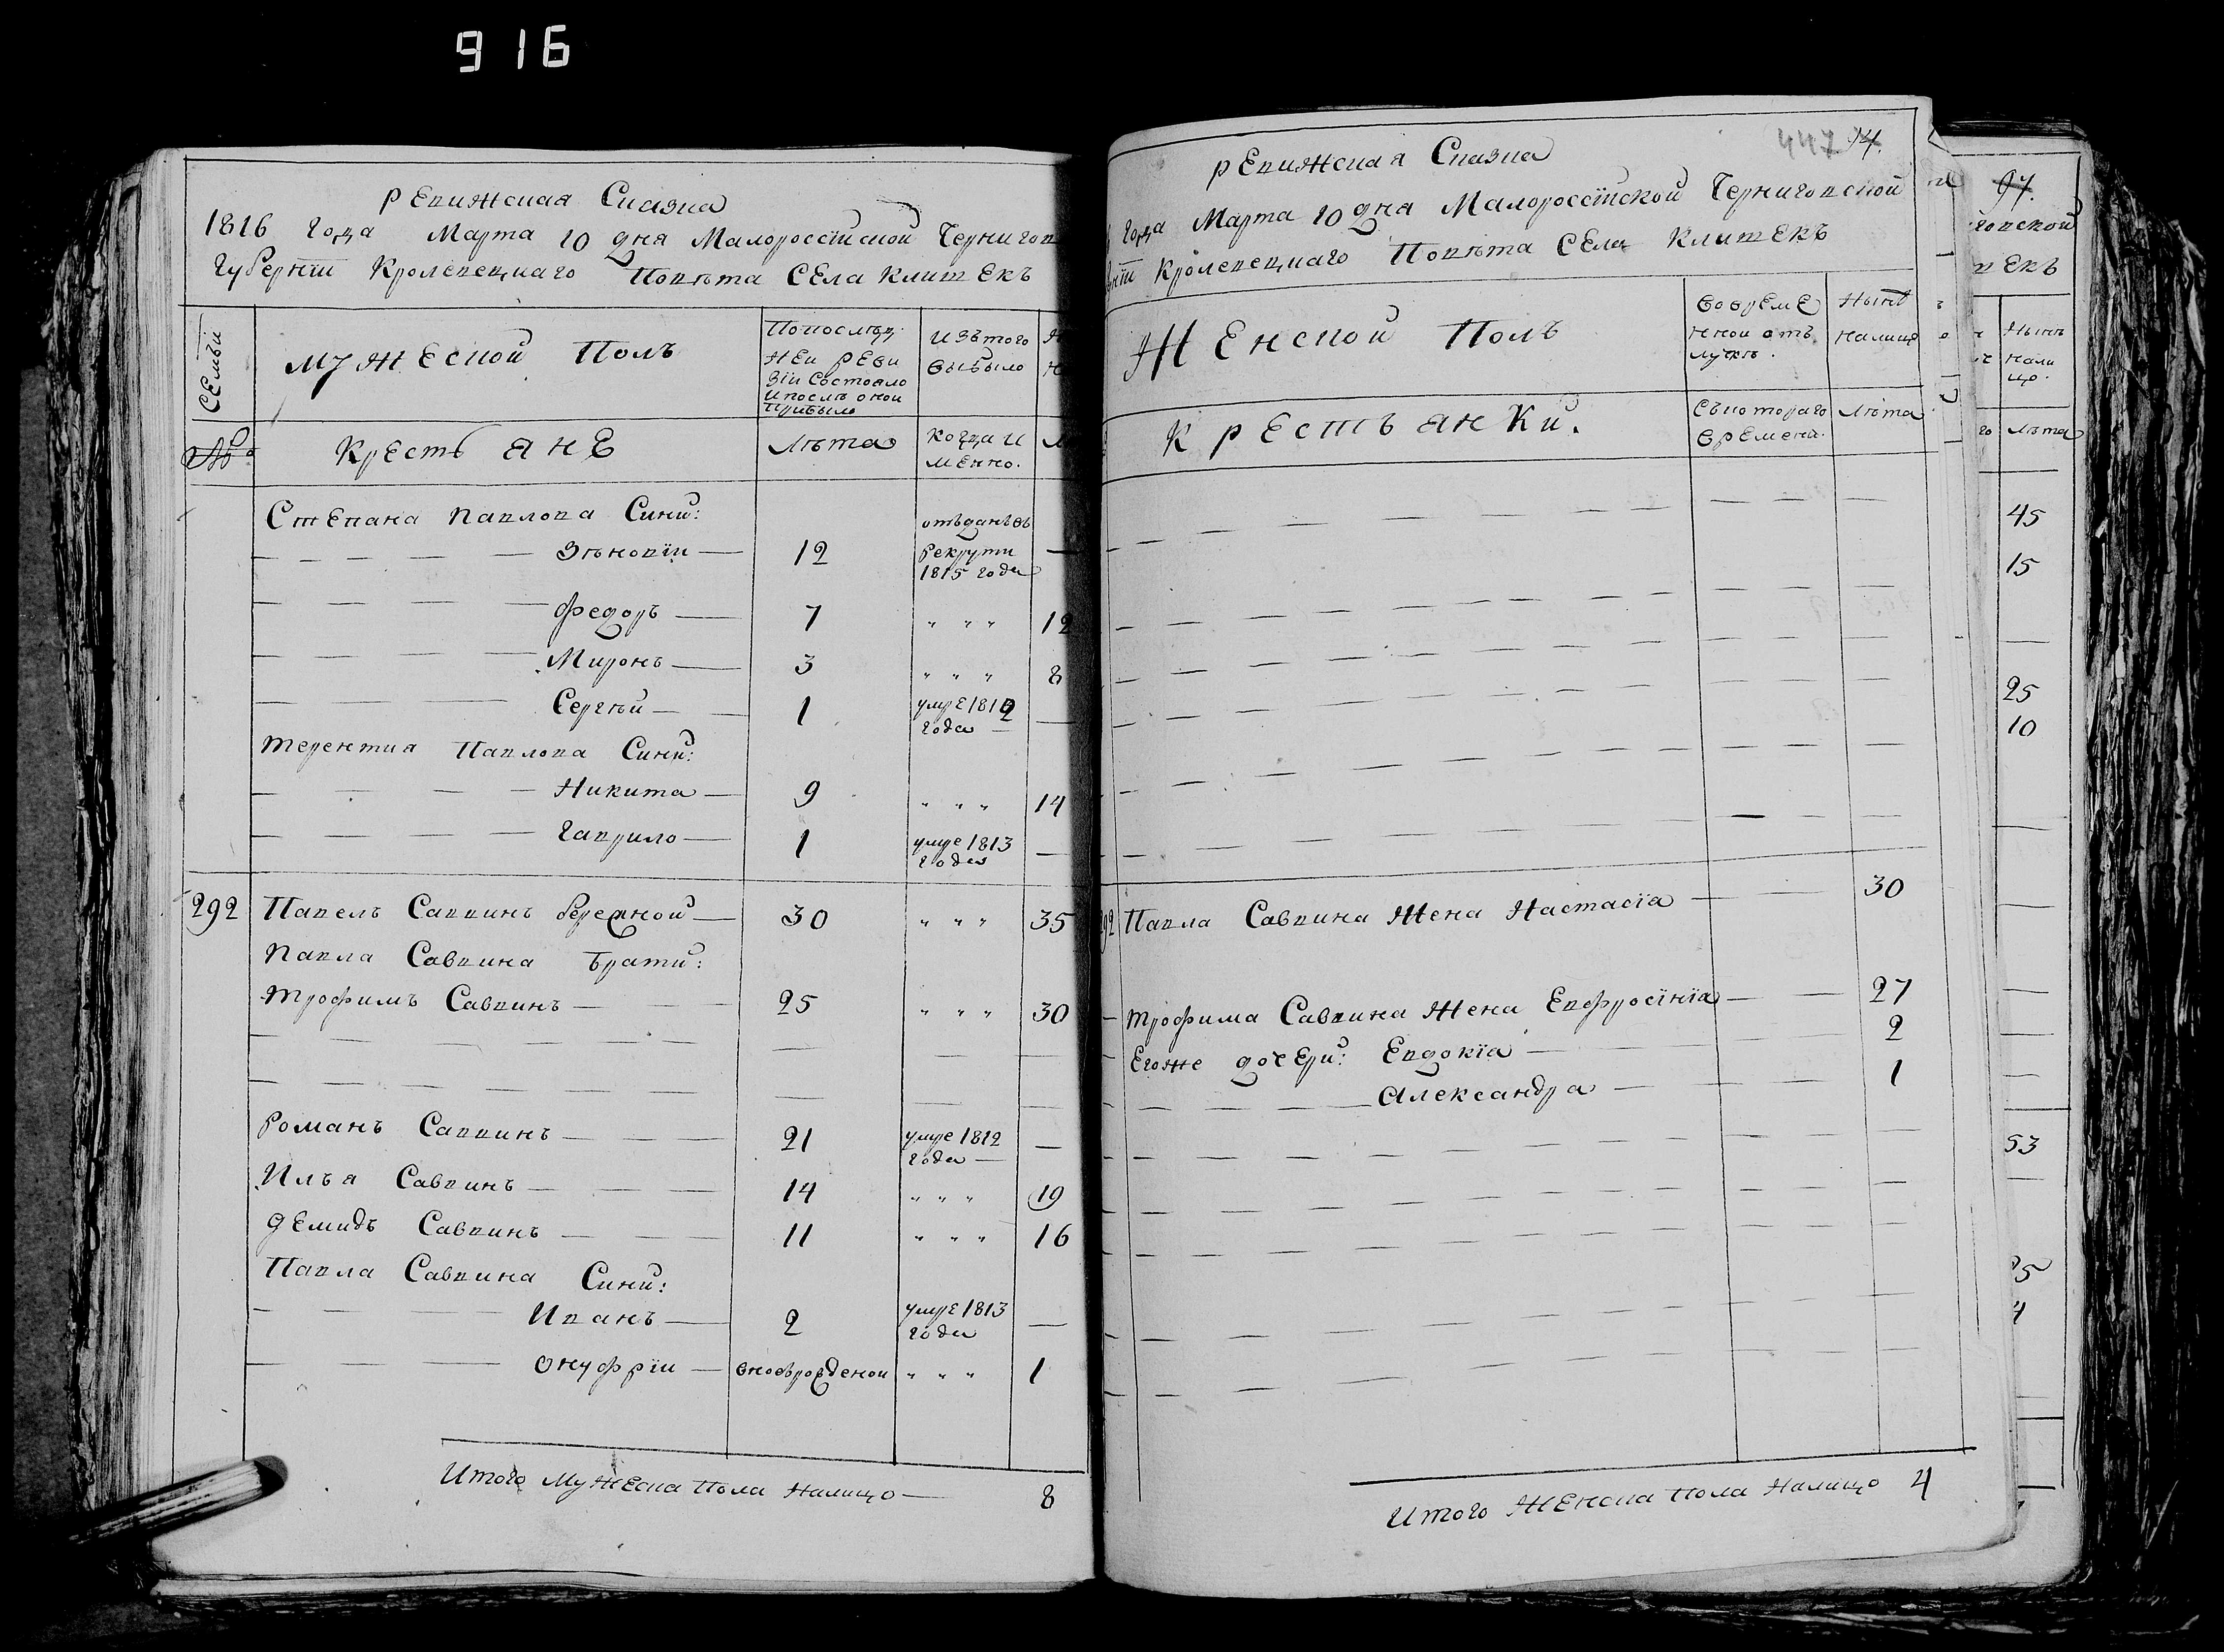 916
ревижская Сказка
1816 года Марта 20 дня Малороссїйской Чернигов
Губернїи Кролевецкаго Повѣта Села Клишекъ
Семьи
Мужеской Полъ
По послѣд:
ней реви
зїи состояло
и послѣ оной
прибыло
изъ того
выбыло
№
Крестьяне
Лѣта
когда и
менно.
Степана Павлова Сини:
Зѣновїи 12 отъданъ въ
рекрути
1815 года
федоръ 7 " " " 12
Миронъ 3 " " " 8
Сергѣй 1 умре 1812
года
терентия Павлова Сини:
Никита 9 " " " 14
гаврило 1 умре 1813
года
292 Павелъ Саввинъ бережной 30 " " " 35
Павла Саввина Брати:
трофимъ Саввинъ 25 " " " 30
романъ Саввинъ 21 умре 1812
года
Илъя Саввинъ 14 " " " 19
демидъ Саввинъ 11 " " " 16
Павла Саввина Сини:
Иванъ 2 умре 1813
года
онуфрїи вновърожденои " " " 1
Итого Мужеска Пола Налицо 8
447 94.
ревижская Сказка
года Марта 20 дня Малороссїйской Черниговской
Кролевецкаго Повѣта Села Клишекъ
Женской Полъ
вовреме
нной отъ
лучкѣ.
Нынѣ
налицо
Крестъянки.
Съкотораго
времени.
Лѣта
Павла Саввина Жена Настасїа 30
трофима Саввина Жена Евфросїнїа 27
Егоже дочери: Евдокїа 2
Александра 1
Итого Женска пола Налицо 4
97.
говской
екъ
Нынѣ
нали
цо.
Лѣта
45
15
25
10
53